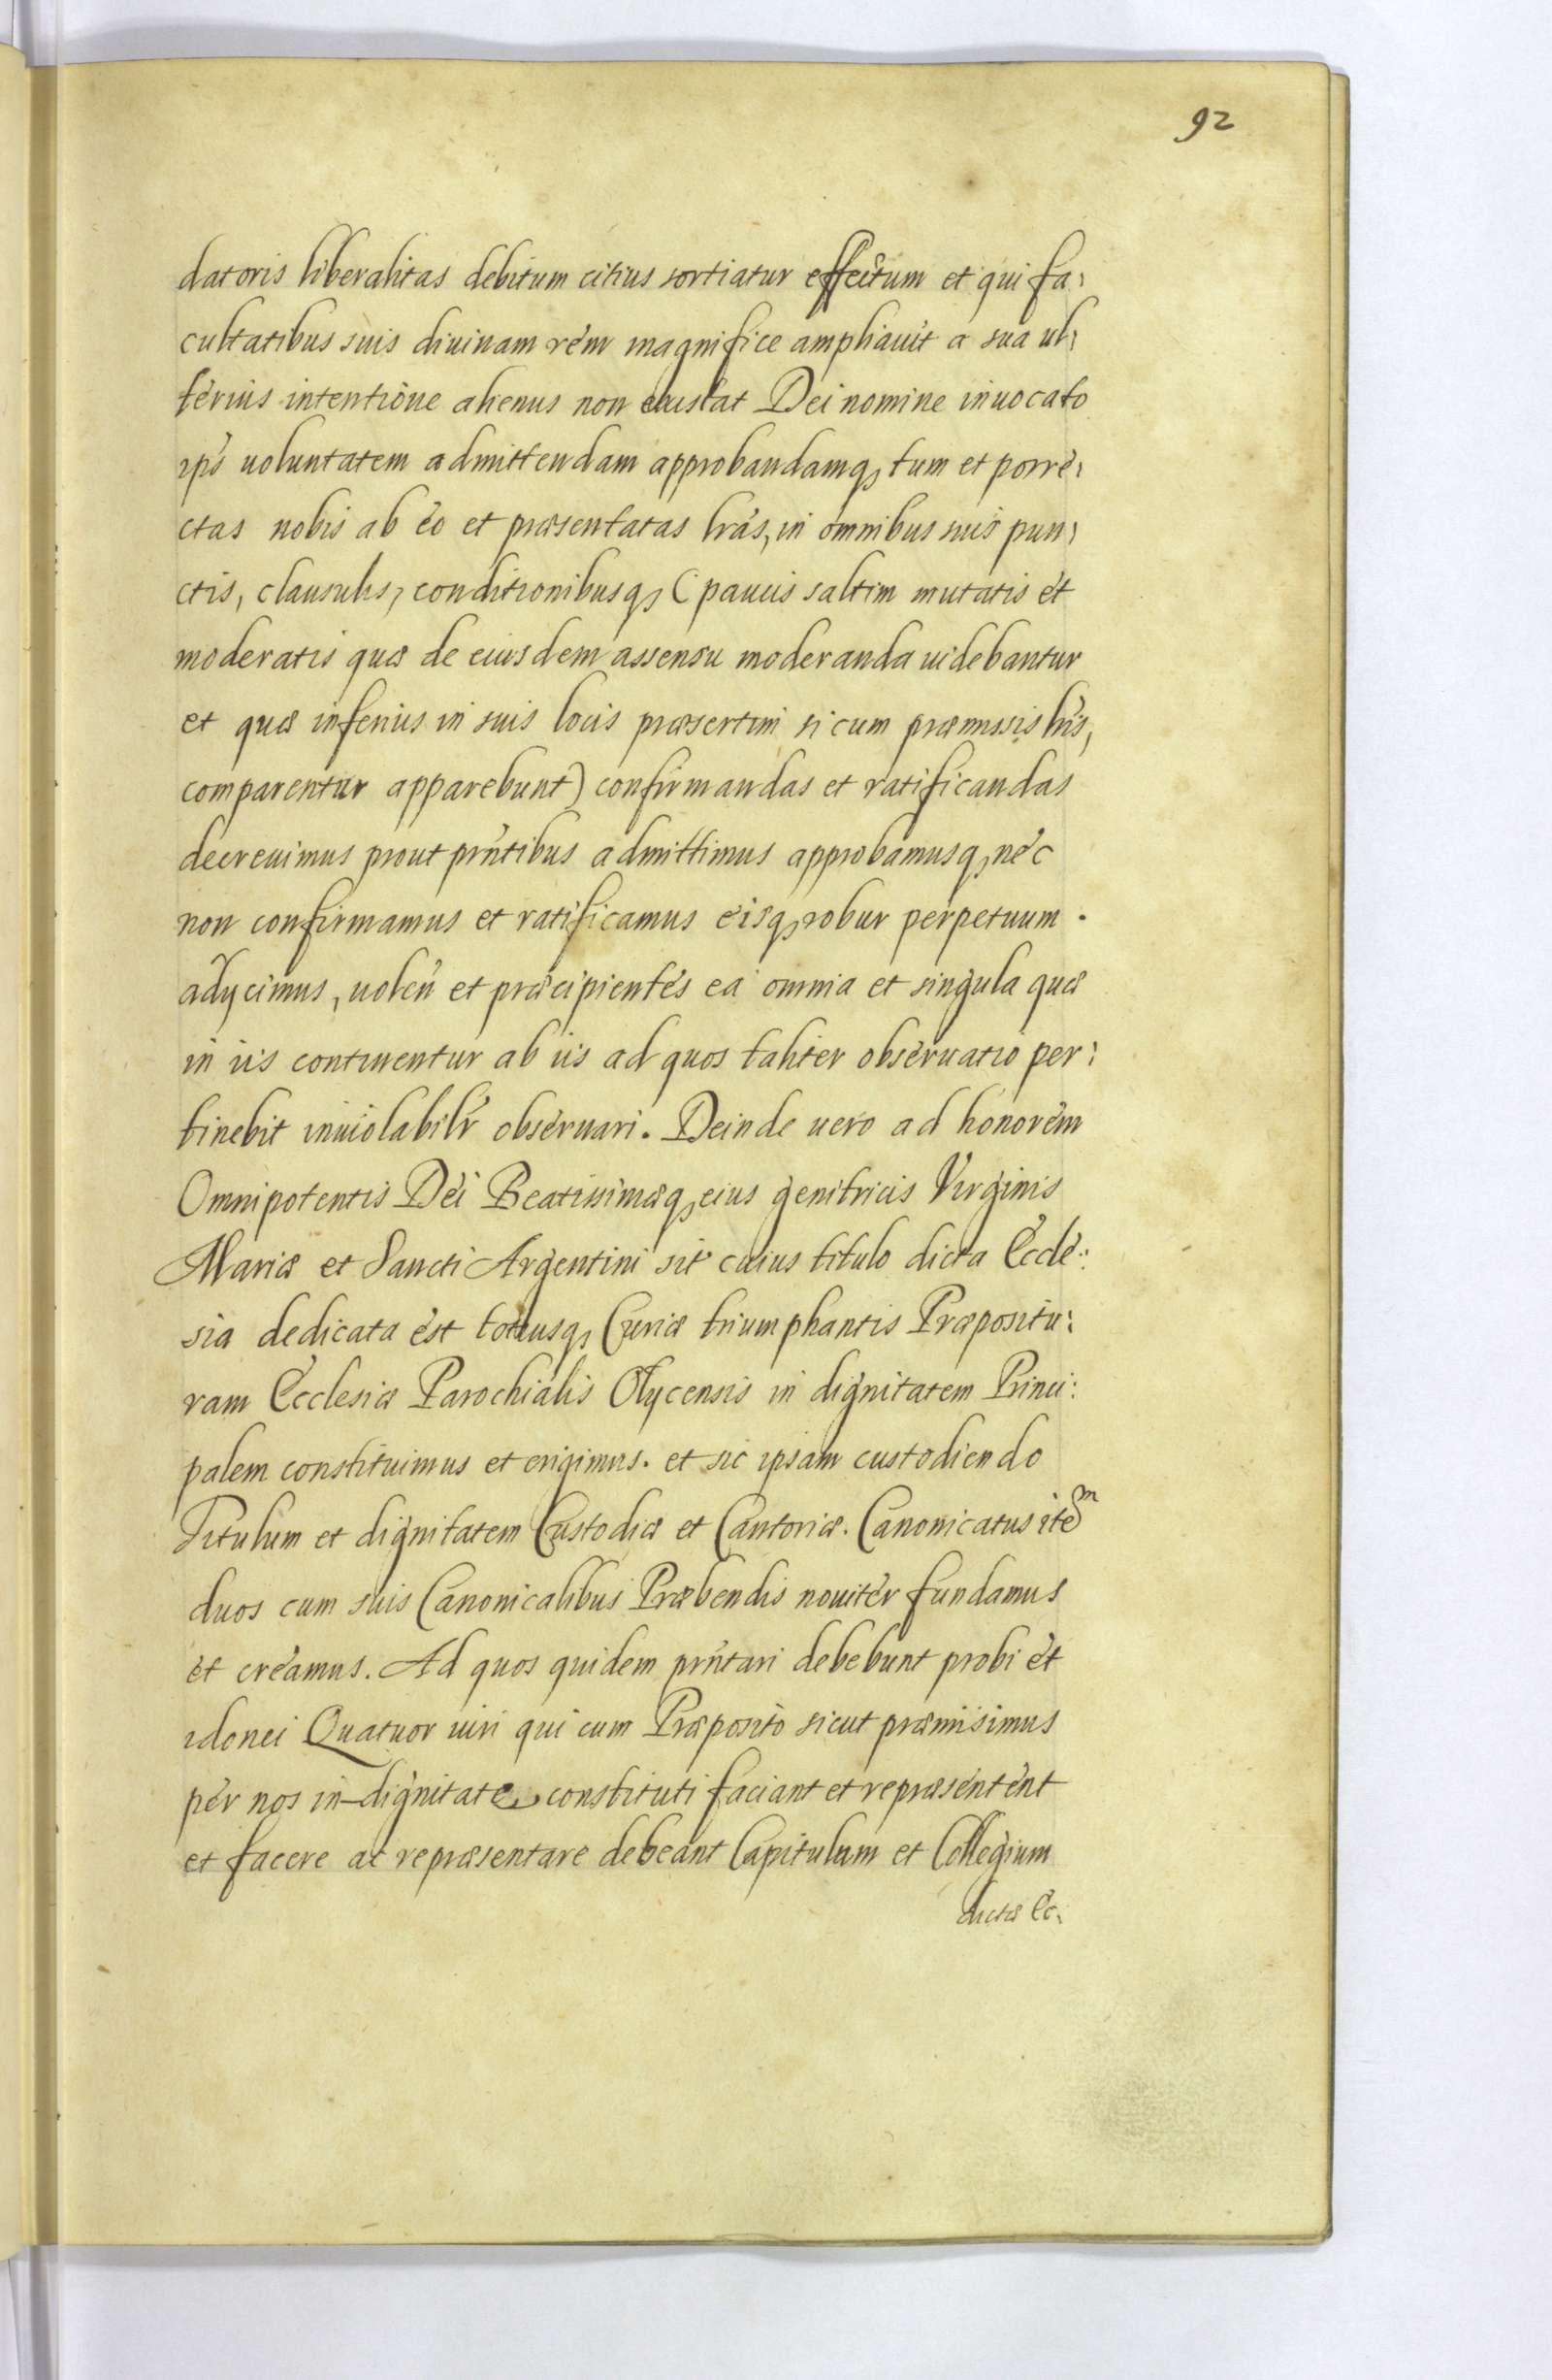 92
datoris liberalitas debitum citius sortiatur effectum et qui fa:
cultatibus suis diuinam rem magnifice ampliauit a sua ul:
terius intentione alienus non existat Dei nomine inuocato
ips uoluntatem admittendam approbandamq, tum et porre:
ctas nobis ab eo et præsentatas lras, in omnibus suis pun:
ctis, clausulis, conditionibusq, (paucis saltim mutatis et
moderatis quæ de eiusdem assensu moderanda uidebantur
et quæ inferius in suis locis præsertim si cum præmissis lris,
comparentur apparebunt) confirmandas et ratificandas
decreuimus prout prntibus admittimus approbamusq, nec
non confirmamus et ratificamus eisq, robur perpetuum.
adycimus, uolen et præcipientes ea omnia et singula quæ
in iis continentur ab iis ad quos taliter obseruatio per:
tinebit inuiolabilr obseruari. Deinde uero ad honorem
Omnipotentis Dei Beatissimæq, eius genitricis Virginis
Mariæ et Sancti Argentini sit cuius titulo dicta Eccle:
sia dedicata est totiusq, Curiæ triumphantis Præpositu:
ram Ecclesiæ Parochialis Olycensis in dignitatem Princi:
palem constituimus et erigimus. et sic ipsam custodiendo
Titulum et dignitatem Custodiæ et Cantoriæ. Canonicatus item
duos cum suis Canonicalibus Præbendis nouiter fundamus
et creamus. Ad quos quidem prntari debebunt probi et
idonei Quatuor uiri qui cum Præposito sicut præmisimus
per nos in dignitate constituti faciant et repræsentent
et facere ac repræsentare debeant Capitulum et Collegium
dictæ Ec: